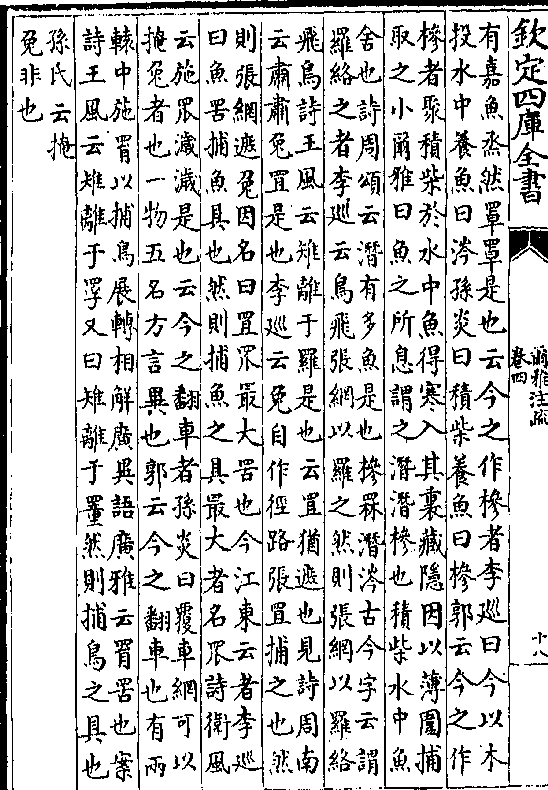 欽定四庫全書
爾雅注疏
卷四
十八
有嘉魚烝然罩罩是也云今之作槮者李巡曰今以木
投水中養魚曰涔孫炎曰積柴養魚曰槮郭云今之作
槮者聚積柴於水中魚得寒入其裏藏隱因以薄圍捕
取之小爾雅曰魚之所息謂之潛潛槮也積柴水中魚
舍也詩周頌云潛有多魚是也槮罧潛涔古今字云謂
羅絡之者李巡云鳥飛張網以羅之然則張網以羅絡
飛鳥詩王風云雉離于羅是也云罝猶遮也見詩周南
云肅肅兔罝是也李巡云兔自作徑路張罝捕之也然
則張網遮兔因名曰罝罛最大罟也今江東云者李巡
曰魚罟捕魚具也然則捕魚之具最大者名罛詩衛風
云施罛濊濊是也云今之翻車者孫炎曰覆車網可以
掩兔者也一物五名方言異也郭云今之翻車也有兩
轅中施罥以捕鳥展轉相解廣異語廣雅云罥罟也案
詩王風云雉離于罦又曰雉離于罿然則捕鳥之具也
孫氏云掩
兔非也